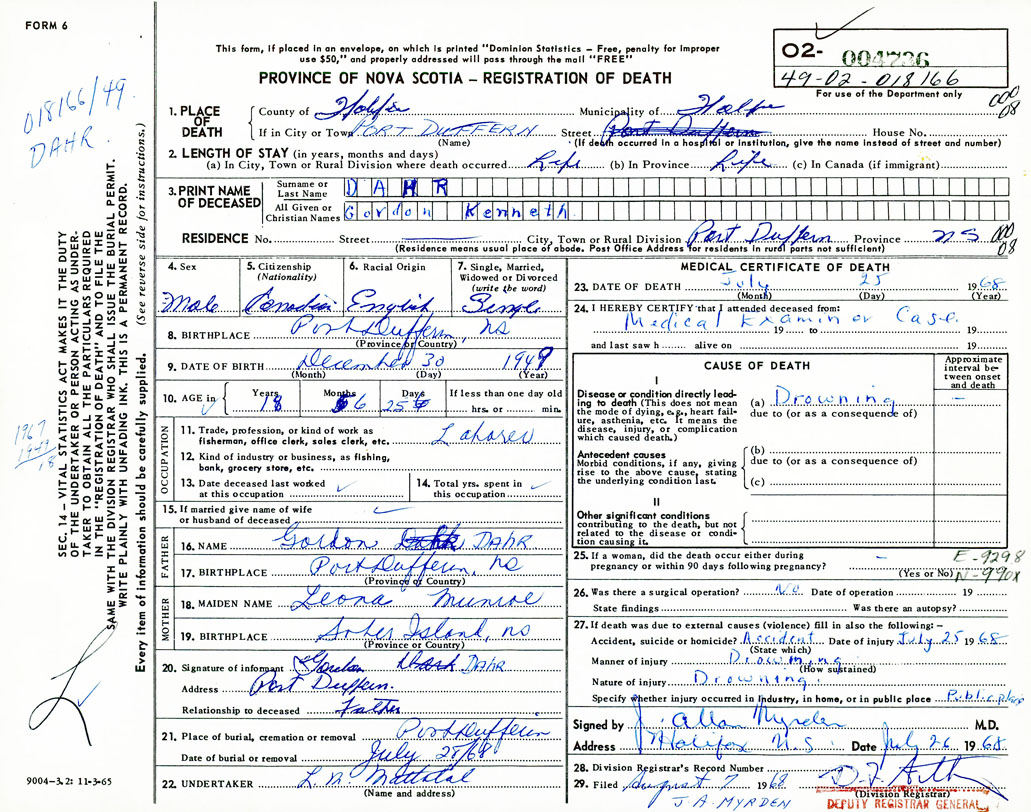 FORM 6
This form, if placed in an envelope, on which is printed "Dominion Statistics – Free, penalty for improper
use $50," and properly addressed will pass through the mail "FREE"
PROVINCE OF NOVA SCOTIA – REGISTRATION OF DEATH
02- 004736
49-02-018166
For use of the Department only
000
08
018166/49
DAHR.
1. PLACE OF DEATH
County of Halifax Municipality of Halifax
If in City or Town PORT DUFFERIN Street Port Dufferin House No.
(Name) (If death occurred in a hospital or institution, give the name instead of street and number)
2. LENGTH OF STAY (in years, months and days)
(a) In City, Town or Rural Division where death occurred Life (b) In Province Life (c) In Canada (if immigrant)
3. PRINT NAME OF DECEASED
Surname or Last Name DAHR
All Given or Christian Names Gordon Kenneth
RESIDENCE No. Street City, Town or Rural Division Port Dufferin Province NS
000
08
(Residence means usual place of abode. Post Office Address for residents in rural parts not sufficient)
4. Sex Male
5. Citizenship (Nationality) Canadian
6. Racial Origin English
7. Single, Married, Widowed or Divorced (write the word) Single
8. BIRTHPLACE Port Dufferin, NS
(Province or Country)
9. DATE OF BIRTH December 30 1949
(Month) (Day) (Year)
10. AGE in Years 18 Months 6 Days 25 If less than one day old hrs. or min.
OCCUPATION
11. Trade, profession, or kind of work as fisherman, office clerk, sales clerk, etc. Laborer
12. Kind of industry or business, as fishing, bank, grocery store, etc.
13. Date deceased last worked at this occupation
14. Total yrs. spent in this occupation
15. If married give name of wife or husband of deceased
FATHER
16. NAME Gordon DAHR
17. BIRTHPLACE Port Dufferin, NS
(Province or Country)
MOTHER
18. MAIDEN NAME Leona Munroe
19. BIRTHPLACE Sober Island, NS
(Province or Country)
20. Signature of informant Gordon DAHR
Address Port Dufferin.
Relationship to deceased Father
21. Place of burial, cremation or removal Port Dufferin
Date of burial or removal July 27/68
22. UNDERTAKER
(Name and address)
MEDICAL CERTIFICATE OF DEATH
23. DATE OF DEATH July 25 1968
(Month) (Day) (Year)
24. I HEREBY CERTIFY that I attended deceased from:
Medical Examiner Case.
19 to 19
and last saw h alive on 19
CAUSE OF DEATH
Approximate interval between onset and death
I
Disease or condition directly leading to death (This does not mean the mode of dying, e.g., heart failure, asthenia, etc. It means the disease, injury, or complication which caused death.)
(a) Drowning –
due to (or as a consequence of)
Antecedent causes
Morbid conditions, if any, giving rise to the above cause, stating the underlying condition last.
(b)
due to (or as a consequence of)
(c)
II
Other significant conditions
contributing to the death, but not related to the disease or condition causing it.
25. If a woman, did the death occur either during pregnancy or within 90 days following pregnancy? –
(Yes or No)
E-9298
N-990X
26. Was there a surgical operation? No. Date of operation 19
State findings Was there an autopsy?
27. If death was due to external causes (violence) fill in also the following: –
Accident, suicide or homicide? Accident Date of injury July 25 1968
(State which)
Manner of injury Drowning
(How sustained)
Nature of injury Drowning.
Specify whether injury occurred in industry, in home, or in public place Public place
Signed by J. Allan Myrden M.D.
Address Halifax N.S. Date July 26 1968
28. Division Registrar's Record Number
29. Filed August 7 1968
(Division Registrar)
J A. MYRDEN
DEPUTY REGISTRAR GENERAL
SEC. 14 – VITAL STATISTICS ACT MAKES IT THE DUTY
OF THE UNDERTAKER OR PERSON ACTING AS UNDER-
TAKER TO OBTAIN ALL THE PARTICULARS REQUIRED
IN THE "REGISTRATION OF DEATH" AND TO FILE THE
SAME WITH THE DIVISION REGISTRAR WHO SHALL ISSUE THE BURIAL PERMIT.
WRITE PLAINLY WITH UNFADING INK. THIS IS A PERMANENT RECORD.
Every item of information should be carefully supplied. (See reverse side for instructions.)
1967
1949
18
9004-3.2: 11-3-65